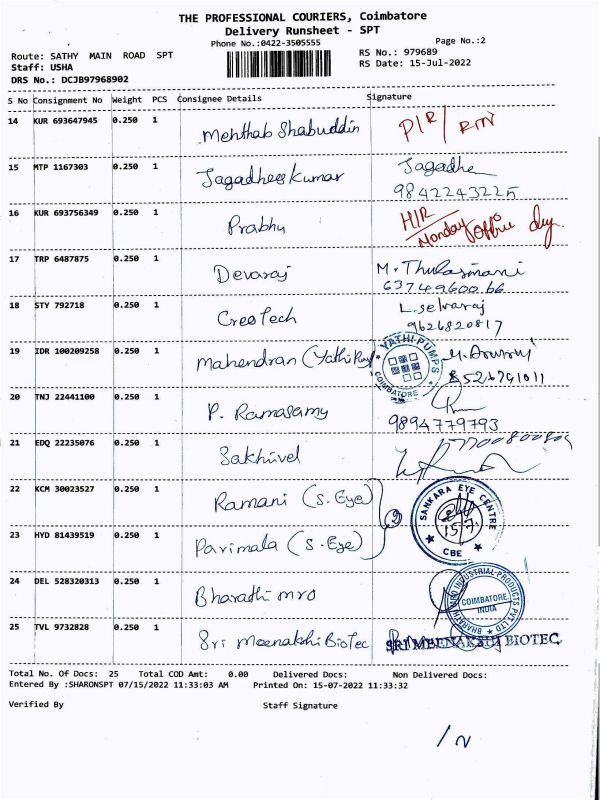 THE PROFESSIONAL COURIERS, Coimbatore
Delivery Runsheet - SPT
Phone No.:0422-3505555 Page No.:2
Route: SATHY MAIN ROAD SPT RS No.: 979689
Staff: USHA RS Date: 15-Jul-2022
DRS No.: DCJB97968902
S No Consignment No Weight PCS Consignee Details Signature
14 KUR 693647945 0.250 1 Mehthab Shabuddin P/R/ RTN
15 MTP 1167303 0.250 1 Jagadhees Kumar Jagadhe
9842243225
16 KUR 693756349 0.250 1 Prabhu H/R
Monday Office day
17 TRP 6487875 0.250 1 Devaraj M. Thulasimani
6374960066
18 STY 792718 0.250 1 CreoTech L. selvaraj
9626820817
19 IDR 100209258 0.250 1 Mahendran (Yathi Pump) YATHI PUMPS COIMBATORE
8526791011
20 TNJ 22441100 0.250 1 P. Ramasamy
9894779793
21 EDQ 22235076 0.250 1 Sakhivel
22 KCM 30023527 0.250 1 Ramani (S. Eye) 2 SANKARA EYE CENTRE
15/7
CBE
23 HYD 81439519 0.250 1 Parimala (S. Eye)
24 DEL 528320313 0.250 1 Bharathi mro INDUSTRIAL PRODUCTS PVT LTD
COIMBATORE
INDIA
25 TVL 9732828 0.250 1 Sri Meenakshi BioTec SRI MEENAKSHI BIOTEC
Total No. Of Docs: 25 Total COD Amt: 0.00 Delivered Docs: Non Delivered Docs:
Entered By :SHARONSPT 07/15/2022 11:33:03 AM Printed On: 15-07-2022 11:33:32
Verified By Staff Signature